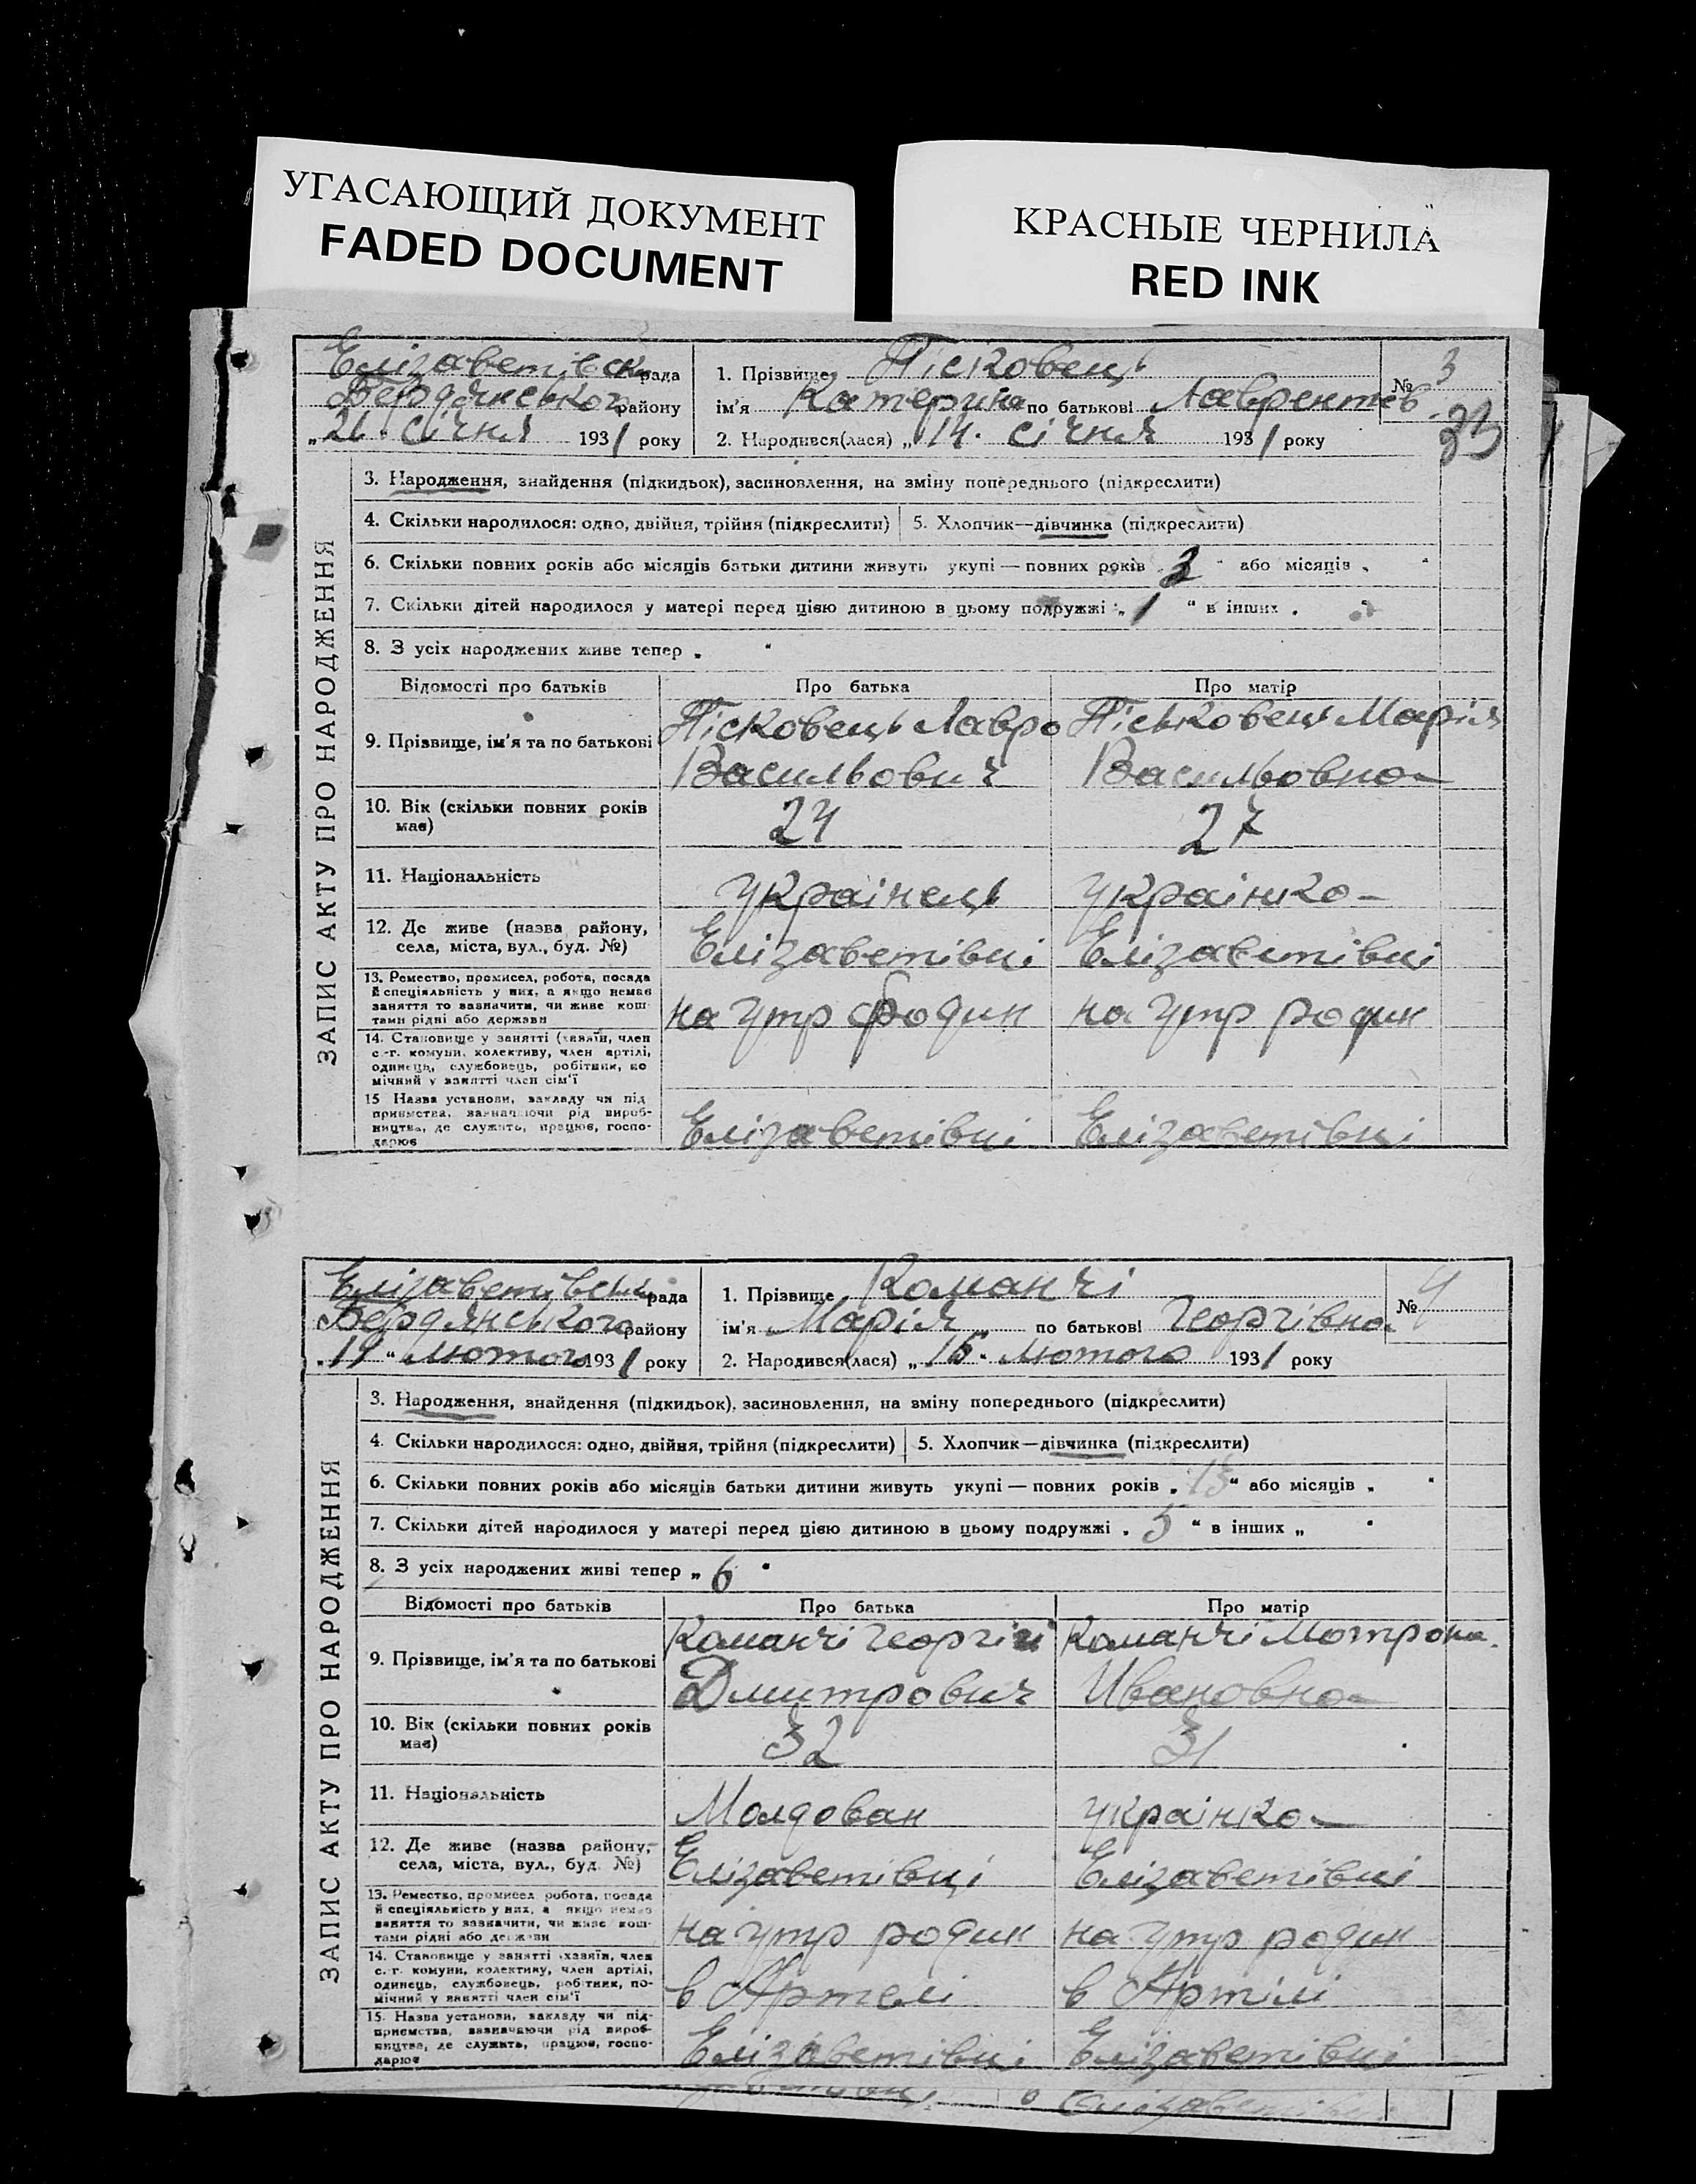 УГАСАЮЩИЙ ДОКУМЕНТ
FADED DOCUMENT
КРАСНЫЕ ЧЕРНИЛА
RED INK
Елізаветівськ рада
Бердянського району
„21“ січня 1931 року
1. Прізвище Пісковець
ім'я Катерина по батькові Лаврентев
2. Народився(лася) „14“ січня 1931 року
№ 3
33
ЗАПИС АКТУ ПРО НАРОДЖЕННЯ
3. Народження, знайдення (підкидьок), засиновлення, на зміну попереднього (підкреслити)
4. Скільки народилося: одно, двійня, трійня (підкреслити) 5. Хлопчик—дівчинка (підкреслити)
6. Скільки повних років або місяців батьки дитини живуть укупі — повних років 3 “ або місяців „ “
7. Скільки дітей народилося у матері перед цією дитиною в цьому подружжі „ 1 “ в інших „ “
8. З усіх народжених живе тепер „ “
Відомості про батьків Про батька Про матір
9. Прізвище, ім'я та по батькові Пісковець Лавро Піськовець Марія
Васильович Васильовна
10. Вік (скільки повних років має) 24 27
11. Національність Українець Українка
12. Де живе (назва району, села, міста, вул., буд. №) Елізаветівці Елізаветівці
13. Ремество, промисел, робота, посада й спеціяльність у них, а якщо немає заняття то зазначити, чи живе коштами рідні або держави на утр родин на утр родин
14. Становище у занятті (хазяїн, член с.-г. комуни, колективу, член артілі, одинець, службовець, робітник, помічний у занятті член сім'ї
15 Назва установи, закладу чи підприємства, зазначаючи рід виробництва, де служить, працює, господарює Елізаветівці Елізаветівці
Елізаветівськ рада
Бердянського району
„19“ Лютого 1931 року
1. Прізвище Команчі
ім'я Марія по батькові Георгівна
2. Народився(лася) „15“ Лютого 1931 року
№ 4
ЗАПИС АКТУ ПРО НАРОДЖЕННЯ
3. Народження, знайдення (підкидьок), засиновлення, на зміну попереднього (підкреслити)
4. Скільки народилося: одно, двійня, трійня (підкреслити) 5. Хлопчик—дівчинка (підкреслити)
6. Скільки повних років або місяців батьки дитини живуть укупі — повних років „ 13 “ або місяців „ “
7. Скільки дітей народилося у матері перед цією дитиною в цьому подружжі „ 5 “ в інших „ “
8. З усіх народжених живі тепер „ 6 “
Відомості про батьків Про батька Про матір
9. Прізвище, ім'я та по батькові Команчі Георгій Команчі Мотрона
Дмитрович Ивановна
10. Вік (скільки повних років має) 32 31
11. Національність Молдован Українка
12. Де живе (назва району, села, міста, вул., буд. №) Елізаветівці Елізаветівці
13. Ремество, промисел робота, посада й спеціяльність у них, а якщо немає заняття то зазначити, чи живе коштами рідні або держави на утр родин на утр родин
14. Становище у занятті хазяїн, член с.-г. комуни, колективу, член артілі, одинець, службовець, робітник, помічний у занятті член сім'ї в Артелі в Артілі
15. Назва установи, закладу чи підприємства, зазначаючи рід виробництва, де служить, працює, господарює Елізаветівці Елізаветівці